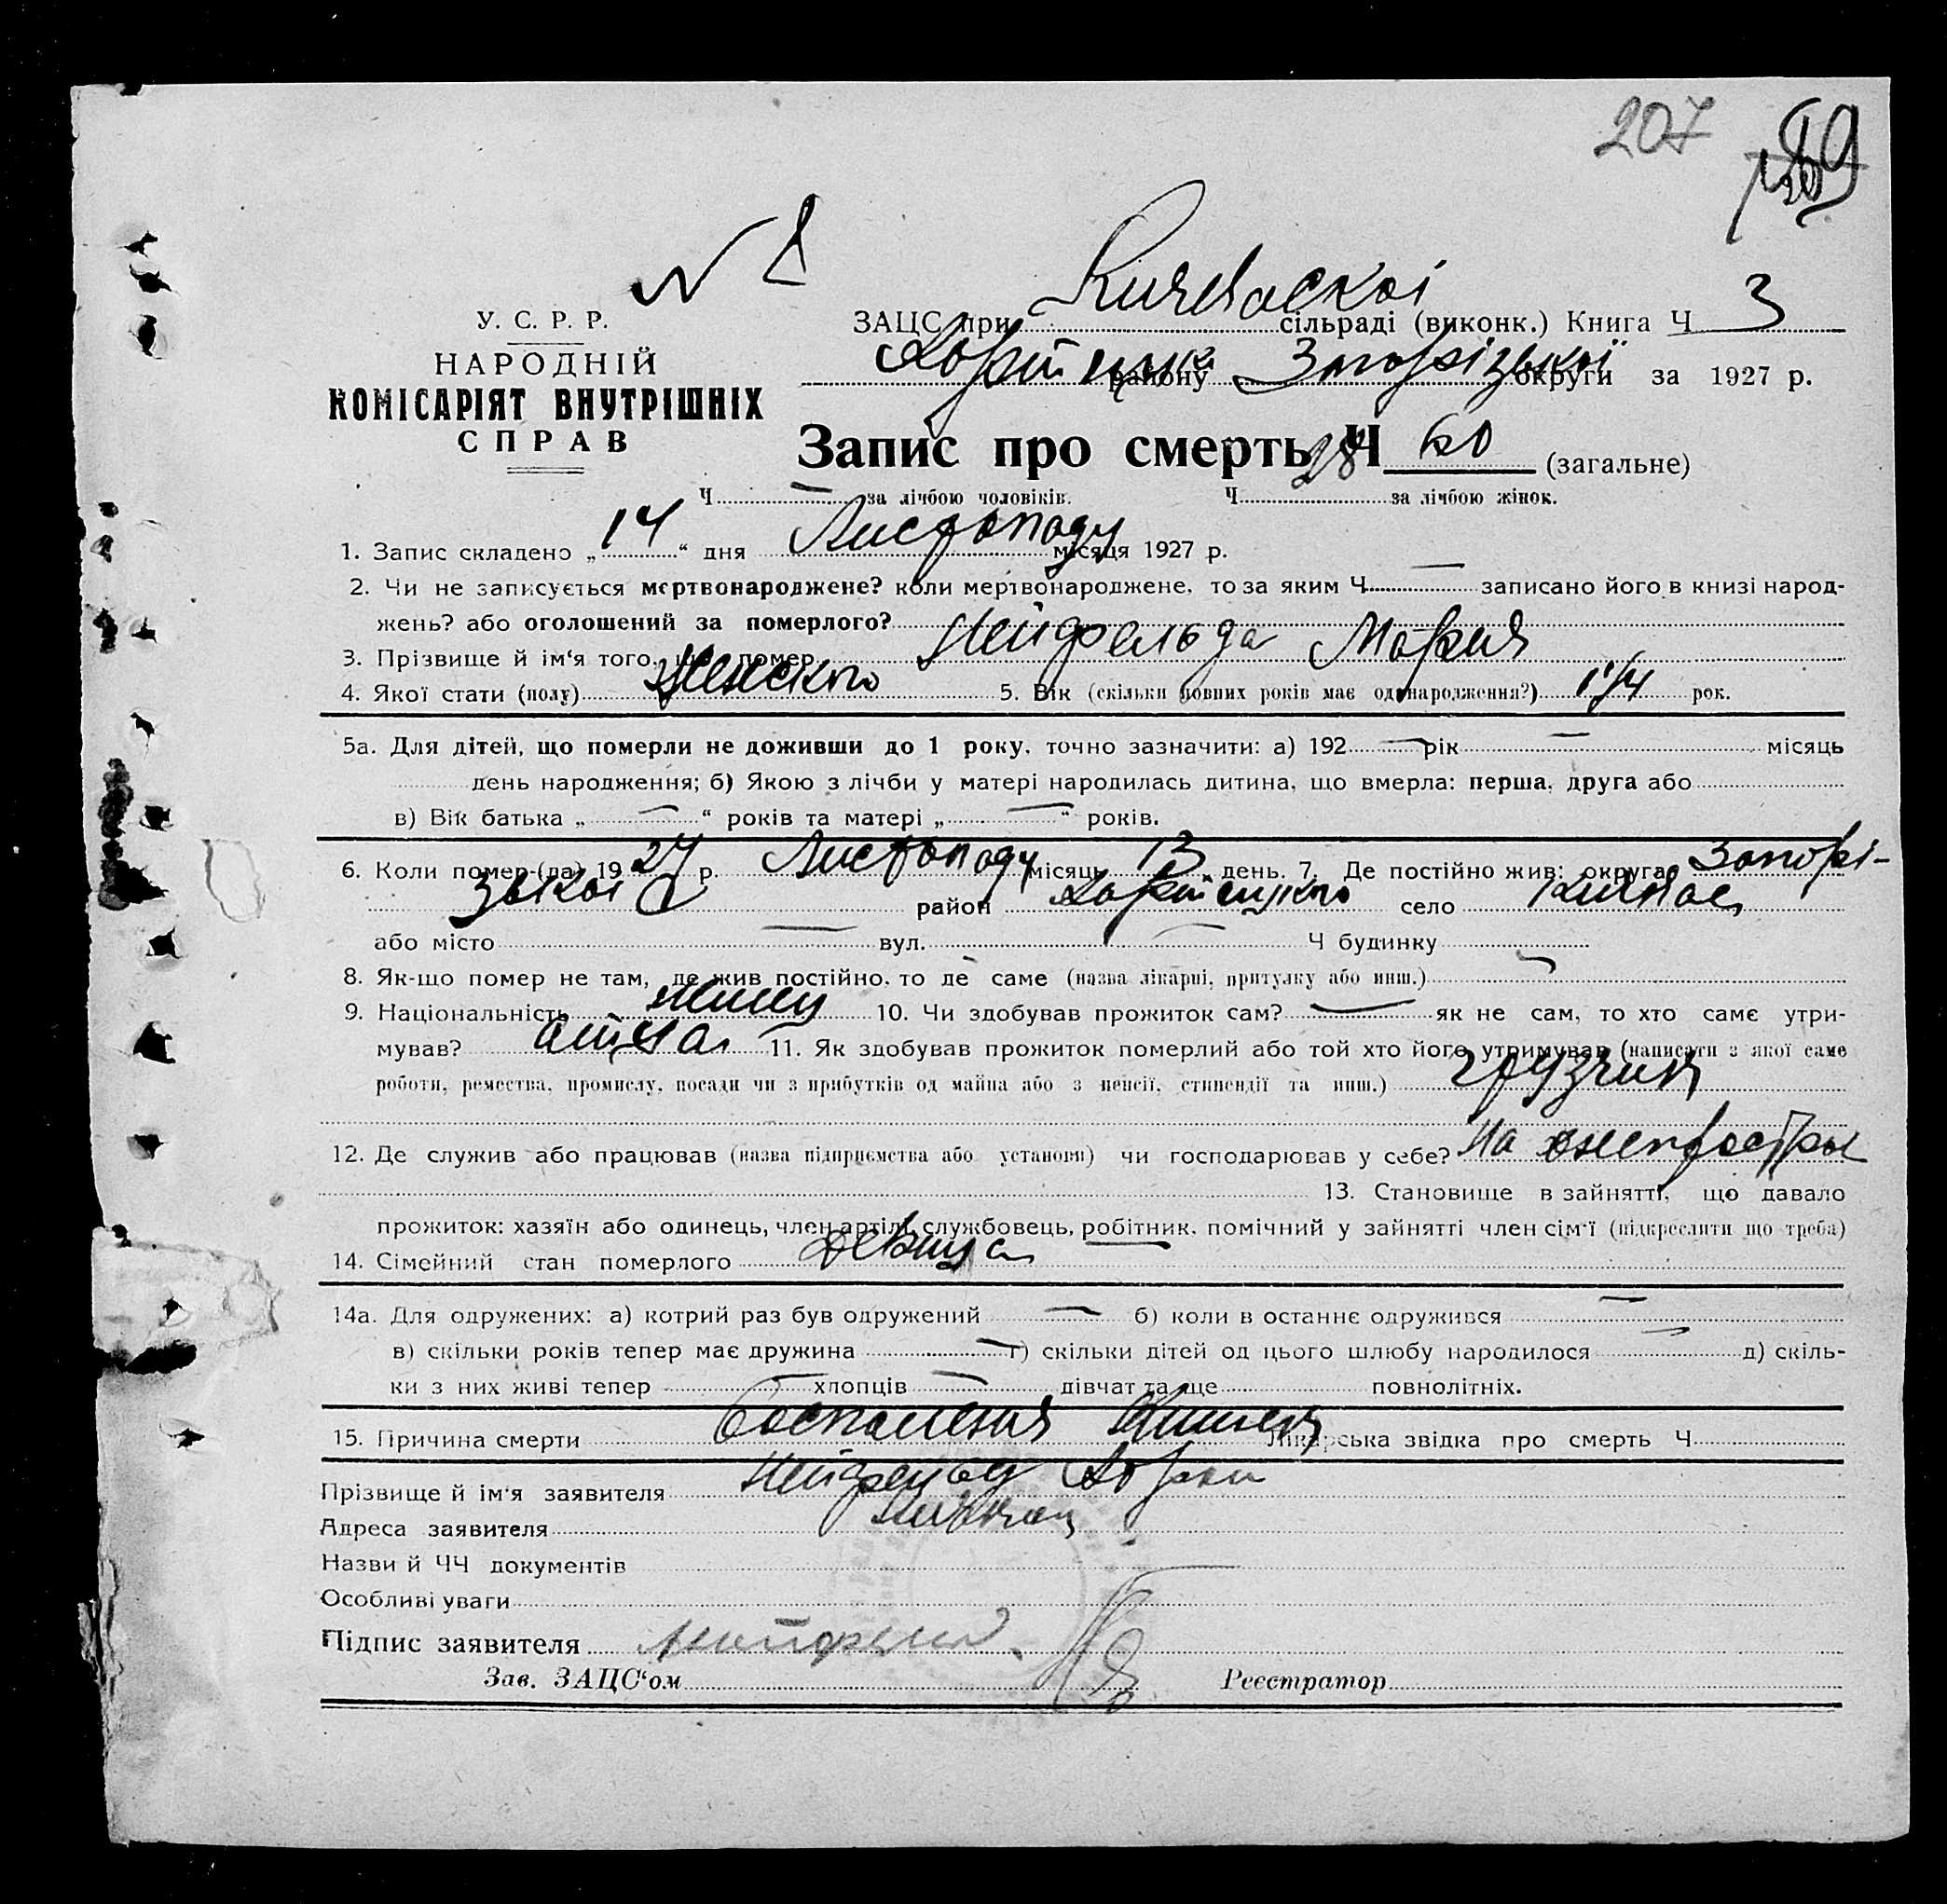 207
89
N 8
У. С. Р. Р.
НАРОДНІЙ
КОМІСАРІЯТ ВНУТРІШНІХ
СПРАВ
ЗАЦС при Кичкаскоі сільраді (виконк.) Книга Ч 3
району Запорізької округи за 1927 р.
Запис про смерть Ч 60 (загальне)
Ч — за лічбою чоловіків. Ч 28 за лічбою жінок.
1. Запис складено „ 14 “ дня Листопаду місяця 1927 р.
2. Чи не записується мертвонароджене? коли мертвонароджене, то за яким Ч — записано його в книзі народ-
жень? або оголошений за померлого?
3. Прізвище й ім‘я того, що помер Нейфельда Мария
4. Якої стати (полу) Женского 5. Вік (скільки повних років має од народження?) 1 1/4 рок.
5а. Для дітей, що померли не доживши до 1 року, точно зазначити: а) 192 — рік — місяць
день народження; б) Якою з лічби у матері народилась дитина, що вмерла: перша, друга або
в) Вік батька „ — “ років та матері „ — “ років.
6. Коли помер-(ла) 1927 р. Листопаду місяць 13 день. 7. Де постійно жив: округа Запорі-
зької район Хортицького село Кичкас
або місто — вул. — Ч будинку
8. Як-що помер не там, де жив постійно, то де саме (назва лікарні, притулку або инш.) —
9. Національність Немец 10. Чи здобував прожиток сам? — як не сам, то хто саме утри-
мував? 11. Як здобував прожиток померлий або той хто його утримував (написати з якої саме
роботи, ремества, промислу, посади чи з прибутків од майна або з пенсії, стипендії та инш.) грузчик
12. Де служив або працював (назва підприємства або установи) чи господарював у себе? На
13. Становище в зайнятті, що давало
прожиток: хазяїн або одинець, член артілі, службовець, робітник, помічний у зайнятті член сім‘ї (підкреслити що треба)
14. Сімейний стан померлого Девица
14а. Для одружених: а) котрий раз був одружений — б) коли в останнє одружився —
в) скільки років тепер має дружина — г) скільки дітей од цього шлюбу народилося — д) скіль-
ки з них живі тепер — хлопців — дівчат та ще повнолітніх.
15. Причина смерти Воспаления Кишек Лікарська звідка про смерть Ч
Прізвище й ім‘я заявителя Нейфельд
Адреса заявителя Кичкас
Назви й ЧЧ документів
Особливі уваги
Підпис заявителя
Зав. ЗАЦС‘ом Реєстратор